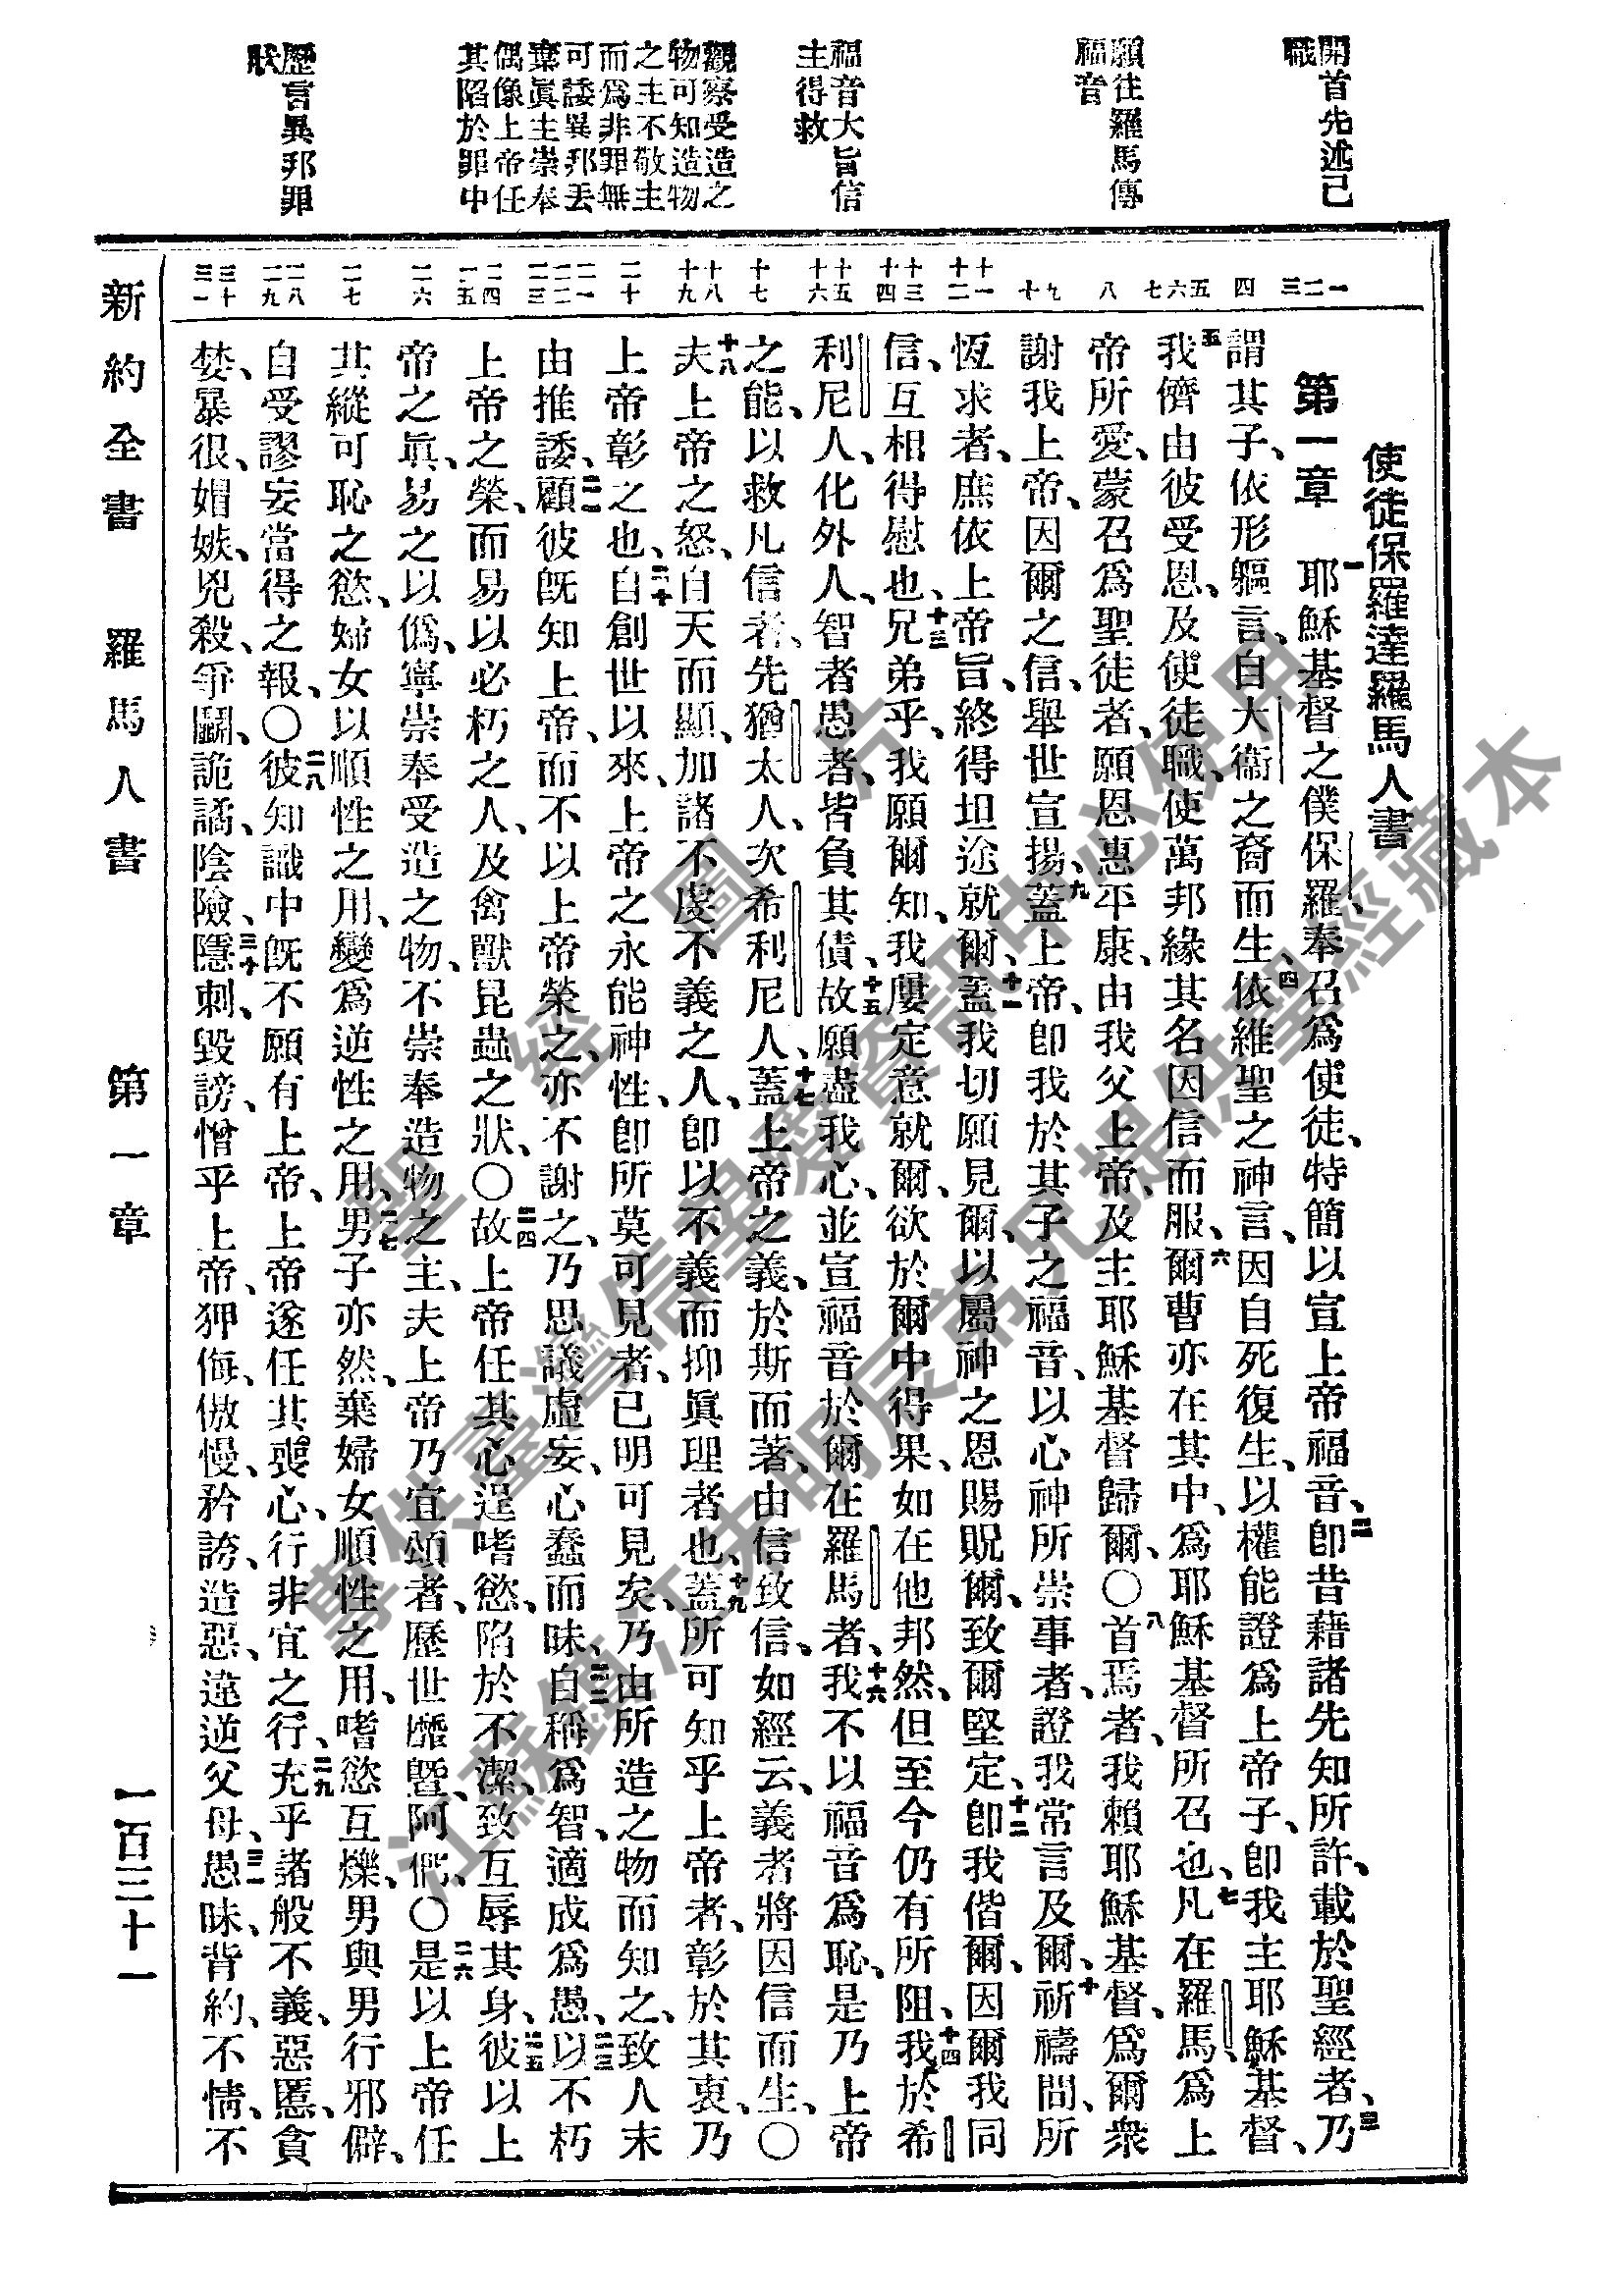 開首先述己
職
願往羅馬傳
福音
福音大旨信
主得救
觀察受造之
物可知造物
之主不敬主
而爲非罪無
可諉異邦丟
棄眞主崇奉
偶像上帝任
其陷於罪中
歷言異邦罪
狀
一 二 三 四 五 六 七 八 九 十 十一 十二 十三 十四 十五 十六 十七 十八 十九 二十 二一 二二 二三 二四 二五 二六 二七 二八 二九 三十 三一
使徒保羅達羅馬人書
第一章 一耶穌基督之僕保羅、奉召爲使徒、特簡以宣上帝福音、二卽昔藉諸先知所許、載於聖經者、三乃
謂其子、依形軀言、自大衞之裔而生、四依維聖之神言、因自死復生、以權能證爲上帝子、卽我主耶穌基督、
五我儕由彼受恩、及使徒職、使萬邦緣其名因信而服、六爾曹亦在其中、爲耶穌基督所召也、七凡在羅馬、爲上
帝所愛、蒙召爲聖徒者、願恩惠平康、由我父上帝、及主耶穌基督歸爾、〇八首焉者、我賴耶穌基督、爲爾衆
謝我上帝、因爾之信、舉世宣揚、九蓋上帝、卽我於其子之福音、以心神所崇事者、證我常言及爾、十祈禱間、所
恆求者、庶依上帝旨、終得坦途就爾、十一蓋我切願見爾、以屬神之恩賜貺爾、致爾堅定、十二卽我偕爾、因爾我同
信、互相得慰也、十三兄弟乎、我願爾知、我屢定意就爾、欲於爾中得果、如在他邦然、但至今仍有所阻、十四我於希
利尼人、化外人、智者愚者、皆負其債、十五故願盡我心、並宣福音於爾在羅馬者、十六我不以福音爲恥、是乃上帝
之能、以救凡信者、先猶太人、次希利尼人、十七蓋上帝之義、於斯而著、由信致信、如經云、義者將因信而生、〇
十八夫上帝之怒、自天而顯、加諸不虔不義之人、卽以不義而抑眞理者也、十九蓋所可知乎上帝者、彰於其衷、乃
上帝彰之也、二十自創世以來、上帝之永能神性、卽所莫可見者、已明可見矣、乃由所造之物而知之、致人末
由推諉、二一顧彼旣知上帝、而不以上帝榮之、亦不謝之、乃思議虛妄、心蠢而昧、二二自稱爲智、適成爲愚、二三以不朽
上帝之榮、而易以必朽之人、及禽獸昆蟲之狀、〇二四故上帝任其心逞嗜慾、陷於不潔、致互辱其身、二五彼以上
帝之眞、易之以僞、寧崇奉受造之物、不崇奉造物之主、夫上帝乃宜頌者、歷世靡曁、阿們、〇二六是以上帝任
其縱可恥之慾、婦女以順性之用、變爲逆性之用、二七男子亦然、棄婦女順性之用、嗜慾互爍、男與男行邪僻、
自受謬妄當得之報、〇二八彼知識中旣不願有上帝、上帝遂任其喪心、行非宜之行、二九充乎諸般不義、惡慝、貪
婪、暴很、媢嫉、兇殺、爭鬭、詭譎、陰險、三十隱刺、毀謗、憎乎上帝、狎侮、傲慢、矜誇、造惡、違逆父母、三一愚昧、背約、不情、不
新約全書 羅馬人書 第一章 一百三十一
聖經圖片
專供臺灣信望愛資訊中心使用
江蘇鎮江朱明辰弟兄提供聖經藏本